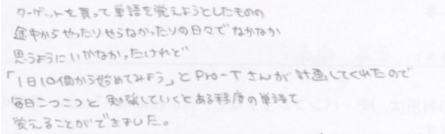 ターゲットを買って単語を覚えようとしたものの
途中からやったりやらなかったりの日々でなかなか
思うようにいかなかったけれど
「1日10個から始めてみよう」とPro-Tさんが計画してくれたので
毎日こつこつと勉強していくとある程度の単語を
覚えることができました。